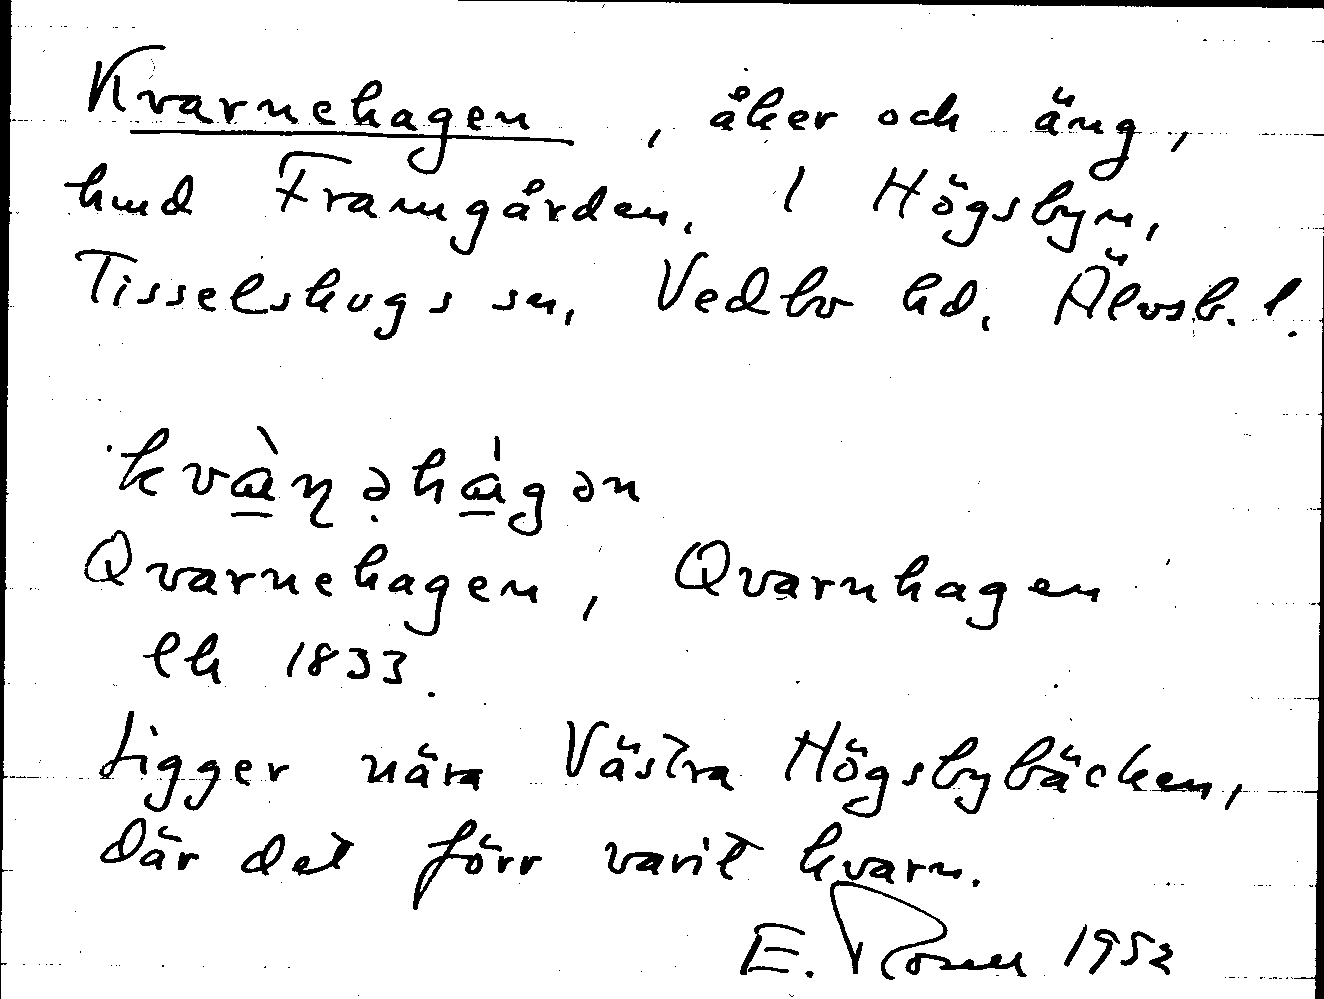 Kvarnehagen, åker och äng,
hmd Framgården. 1 Högsbyn,
Tisselskogs sn, Vedbo hd, Älvsb. l.
kvàɳəhágən
Qvarnehagen, Qvarnhagen
lh 1833.
Ligger nära Västra Högsbybäcken,
där det förr varit kvarn.
E. Rosell 1952